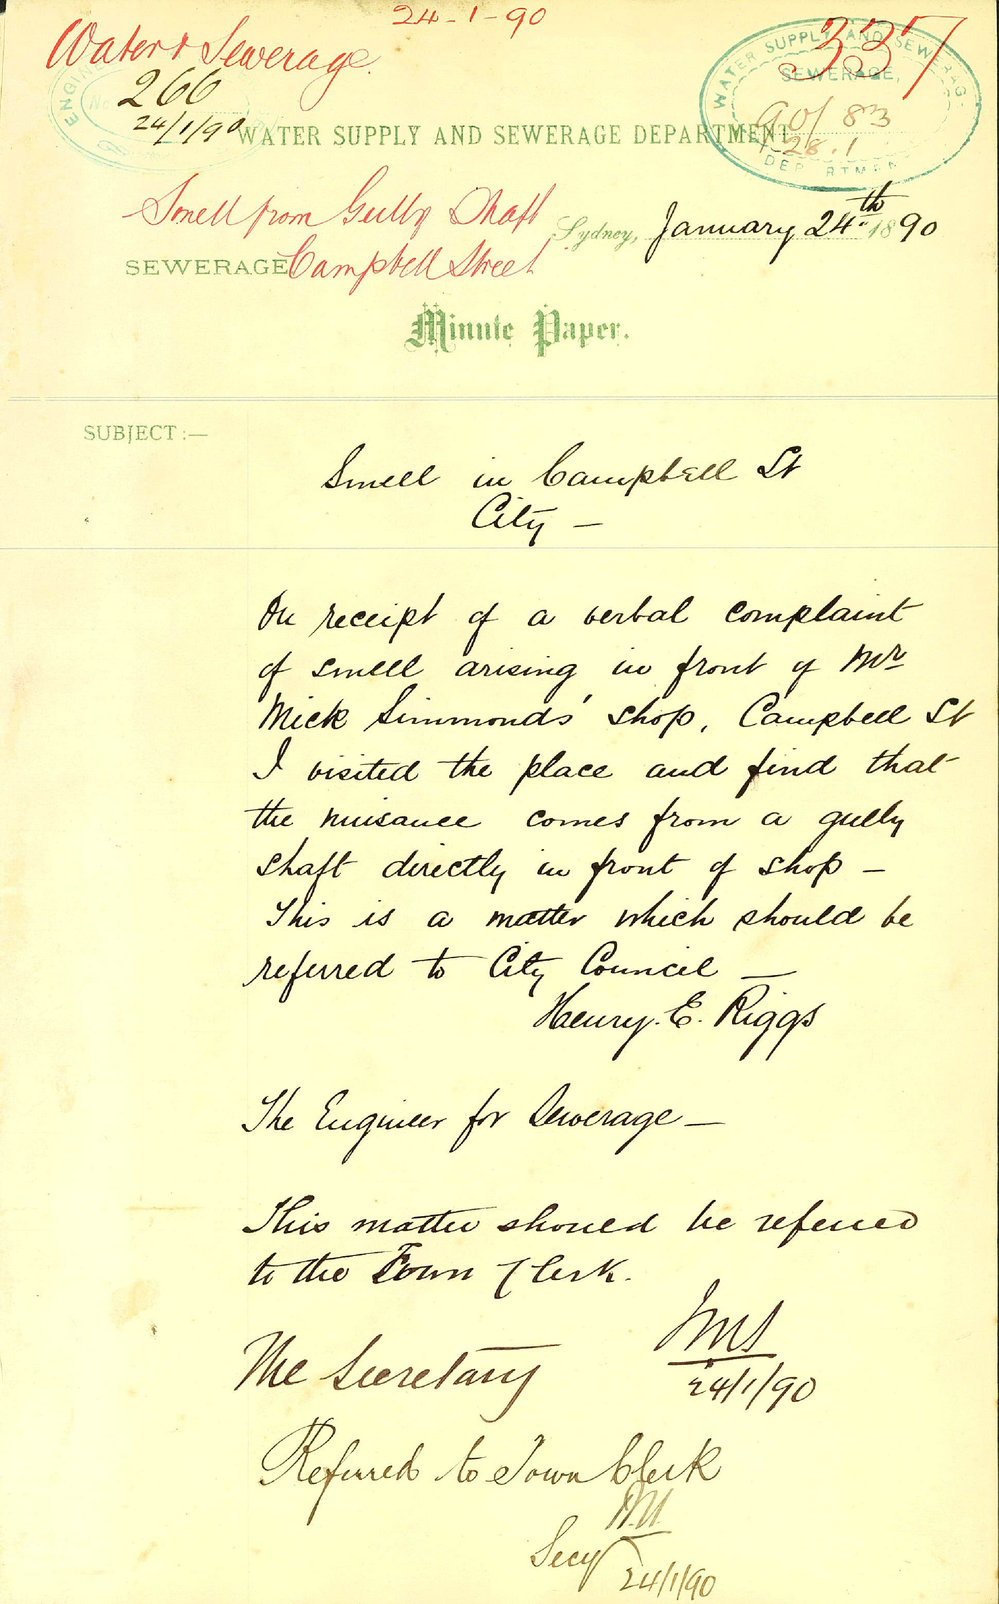 24-1-90
Water & Sewerage.
337
ENGINE
No. 266
24/1/90
WATER SUPPLY AND SEWERAGE
SEWERAGE,
90/83
28.1
DEPARTMENT
WATER SUPPLY AND SEWERAGE DEPARTMENT.
Smell from Gully Shaft
Sydney, January 24th 1890
SEWERAGE Campbell Street
Minute Paper.
SUBJECT :—
Smell in Campbell St
City —
On receipt of a verbal complaint
of smell arising in front of Mr
Mick Simmonds' shop, Campbell St
I visited the place and find that
the nuisance comes from a gully
shaft directly in front of shop —
This is a matter which should be
referred to City Council —
Henry. E. Riggs
The Engineer for Sewerage —
This matter should be referred
to the Town Clerk.
JMS
24/1/90
The Secretary
Referred to Town Clerk
Secy
24/1/90